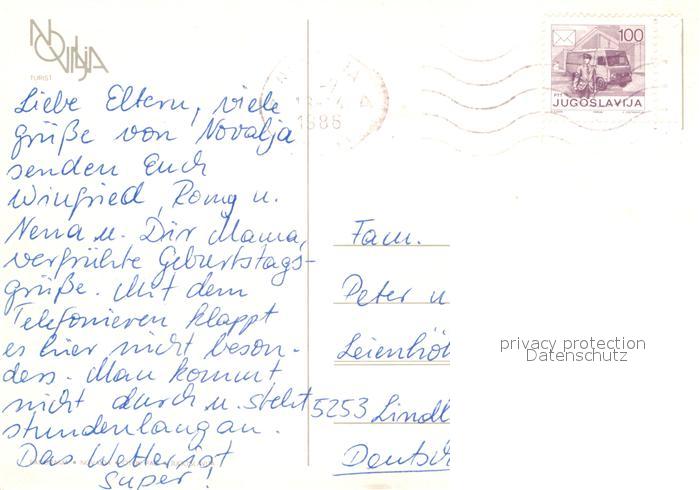 NOVALJA
TURIST
Liebe Eltern, viele
grüße von Novalja
senden Euch
Winfried, Romy u.
Nena u. Dir Mama,
verfrühte Geburtstags-
grüße. Mit dem
Telefonieren klappt
es hier nicht beson-
ders. Man kommt
nicht durch u. steht
stundenlang an.
Das Wetter ist
super!
1986
100
PTT
JUGOSLAVIJA
Fam.
Peter u
Leienhö
5253 Lindl
Deutsch
privacy protection
Datenschutz